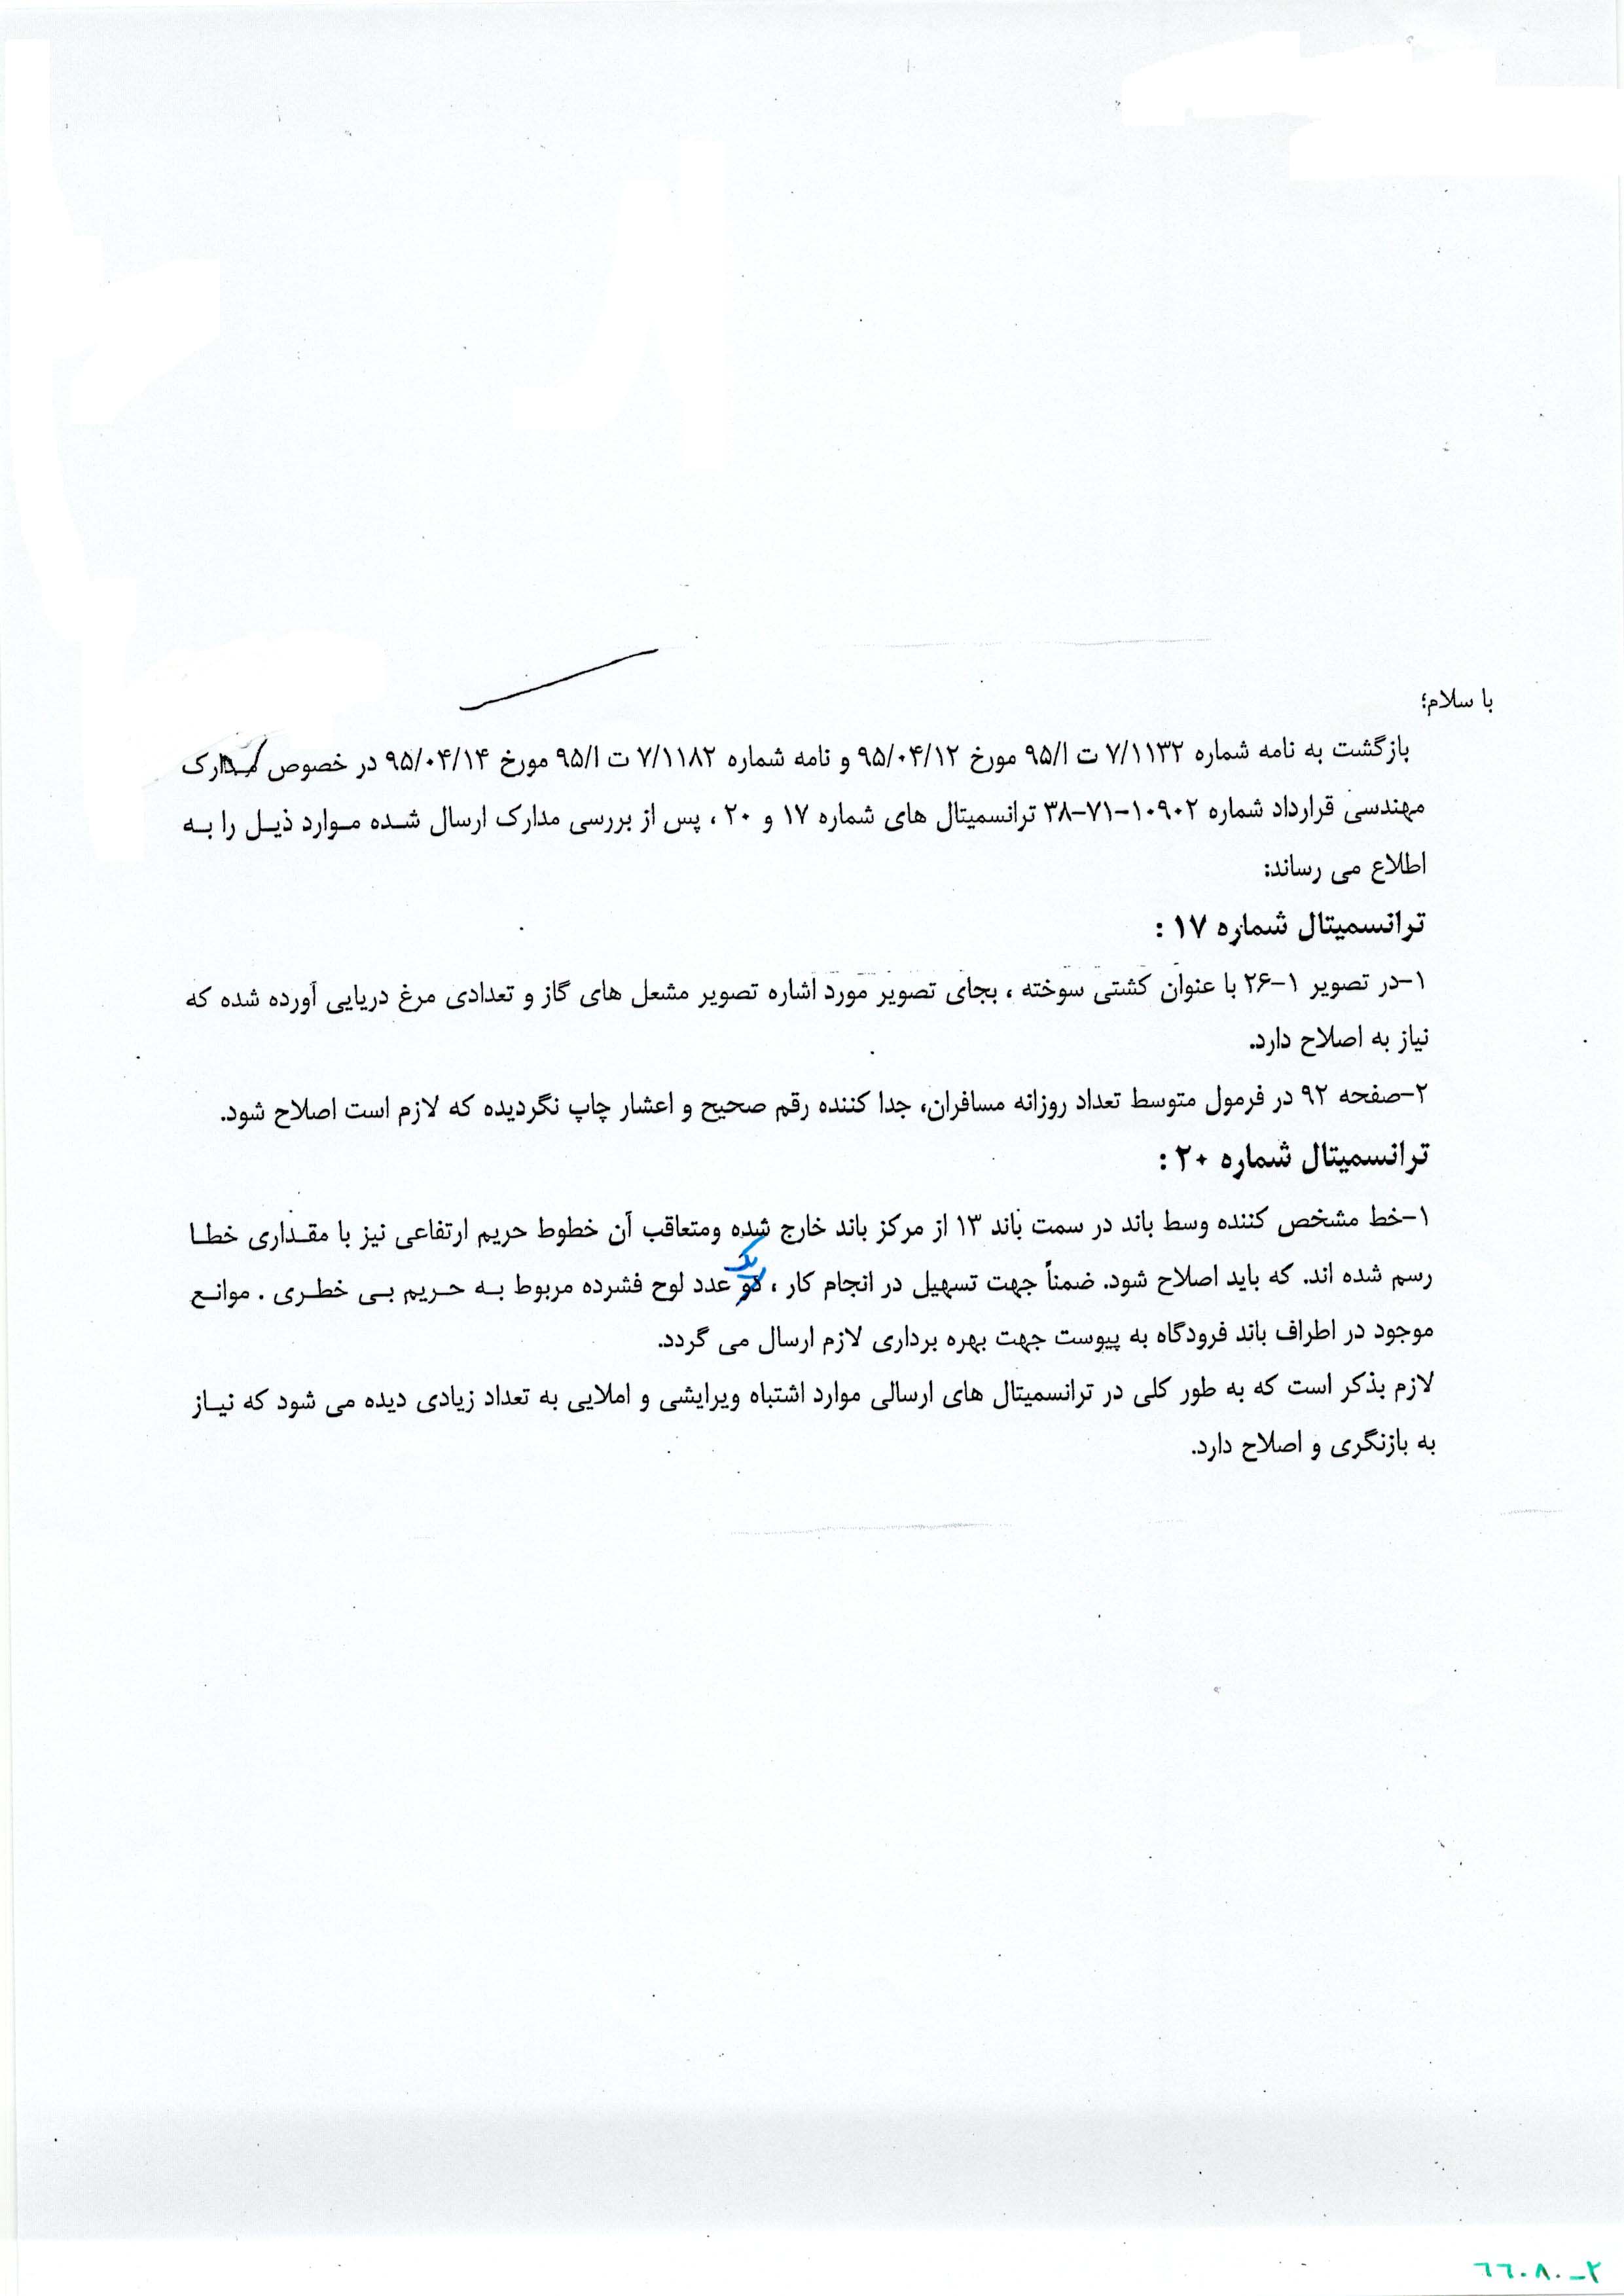 با سلام؛
بازگشت به نامه شماره ۷/۱۱۳۲ ت ا/۹۵ مورخ ۹۵/۰۴/۱۲ و نامه شماره ۷/۱۱۸۲ ت ا/۹۵ مورخ ۹۵/۰۴/۱۴ در خصوص مدارک
مهندسی قرارداد شماره ۱۰۹۰۲-۷۱-۳۸ ترانسمیتال های شماره ۱۷ و ۲۰ ، پس از بررسی مدارک ارسال شده موارد ذیل را به
اطلاع می رساند:
ترانسمیتال شماره ۱۷ :
۱-در تصویر ۱-۲۶ با عنوان کشتی سوخته ، بجای تصویر مورد اشاره تصویر مشعل های گاز و تعدادی مرغ دریایی آورده شده که
نیاز به اصلاح دارد.
۲-صفحه ۹۲ در فرمول متوسط تعداد روزانه مسافران، جدا کننده رقم صحیح و اعشار چاپ نگردیده که لازم است اصلاح شود.
ترانسمیتال شماره ۲۰ :
۱-خط مشخص کننده وسط باند در سمت باند ۱۳ از مرکز باند خارج شده ومتعاقب آن خطوط حریم ارتفاعی نیز با مقداری خطا
یک
رسم شده اند. که باید اصلاح شود. ضمناً جهت تسهیل در انجام کار ، دو عدد لوح فشرده مربوط به حریم بی خطری . موانع
موجود در اطراف باند فرودگاه به پیوست جهت بهره برداری لازم ارسال می گردد.
لازم بذکر است که به طور کلی در ترانسمیتال های ارسالی موارد اشتباه ویرایشی و املایی به تعداد زیادی دیده می شود که نیاز
به بازنگری و اصلاح دارد.
۶۶۰۸۰-۲